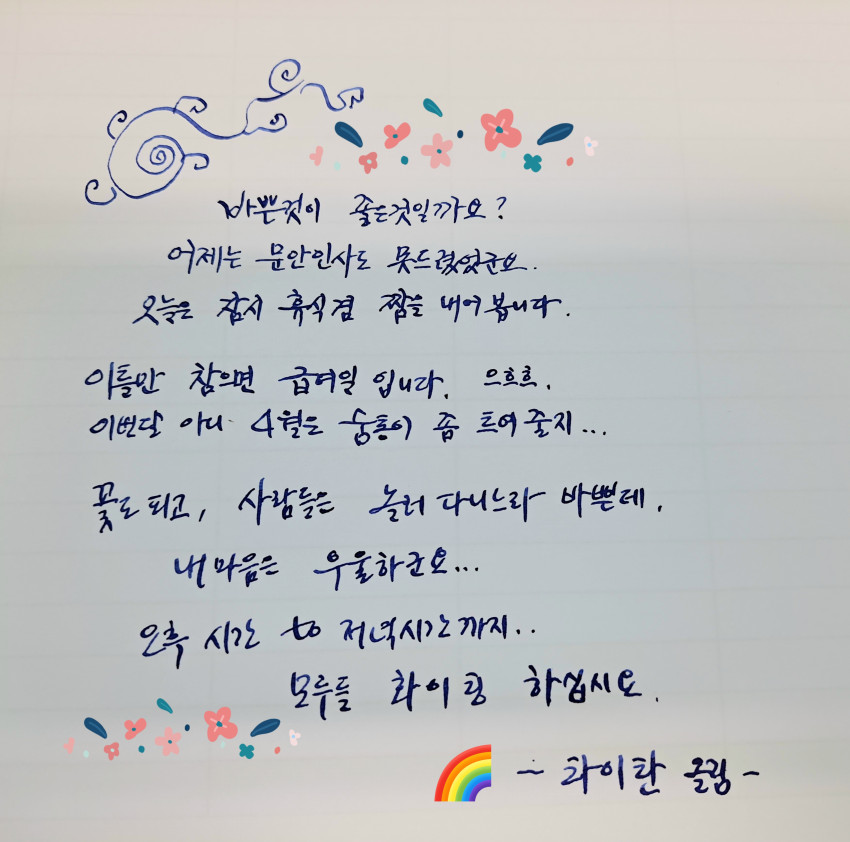 바쁜것이 좋은것일까요?
어제는 문안인사도 못드렸었군요.
오늘은 잠시 휴식겸 짬을 내어 봅니다.
이틀만 참으면 급여일 입니다. 으흐흐.
이번달 아니 4월은 숨통이 좀 트여 줄지...
꽃도 피고, 사람들은 놀러 다니느라 바쁜데.
내 마음은 우울하군요...
오후 시간 to 저녁시간까지..
모두들 화이팅 하십시오.
- 파이란 올림 -